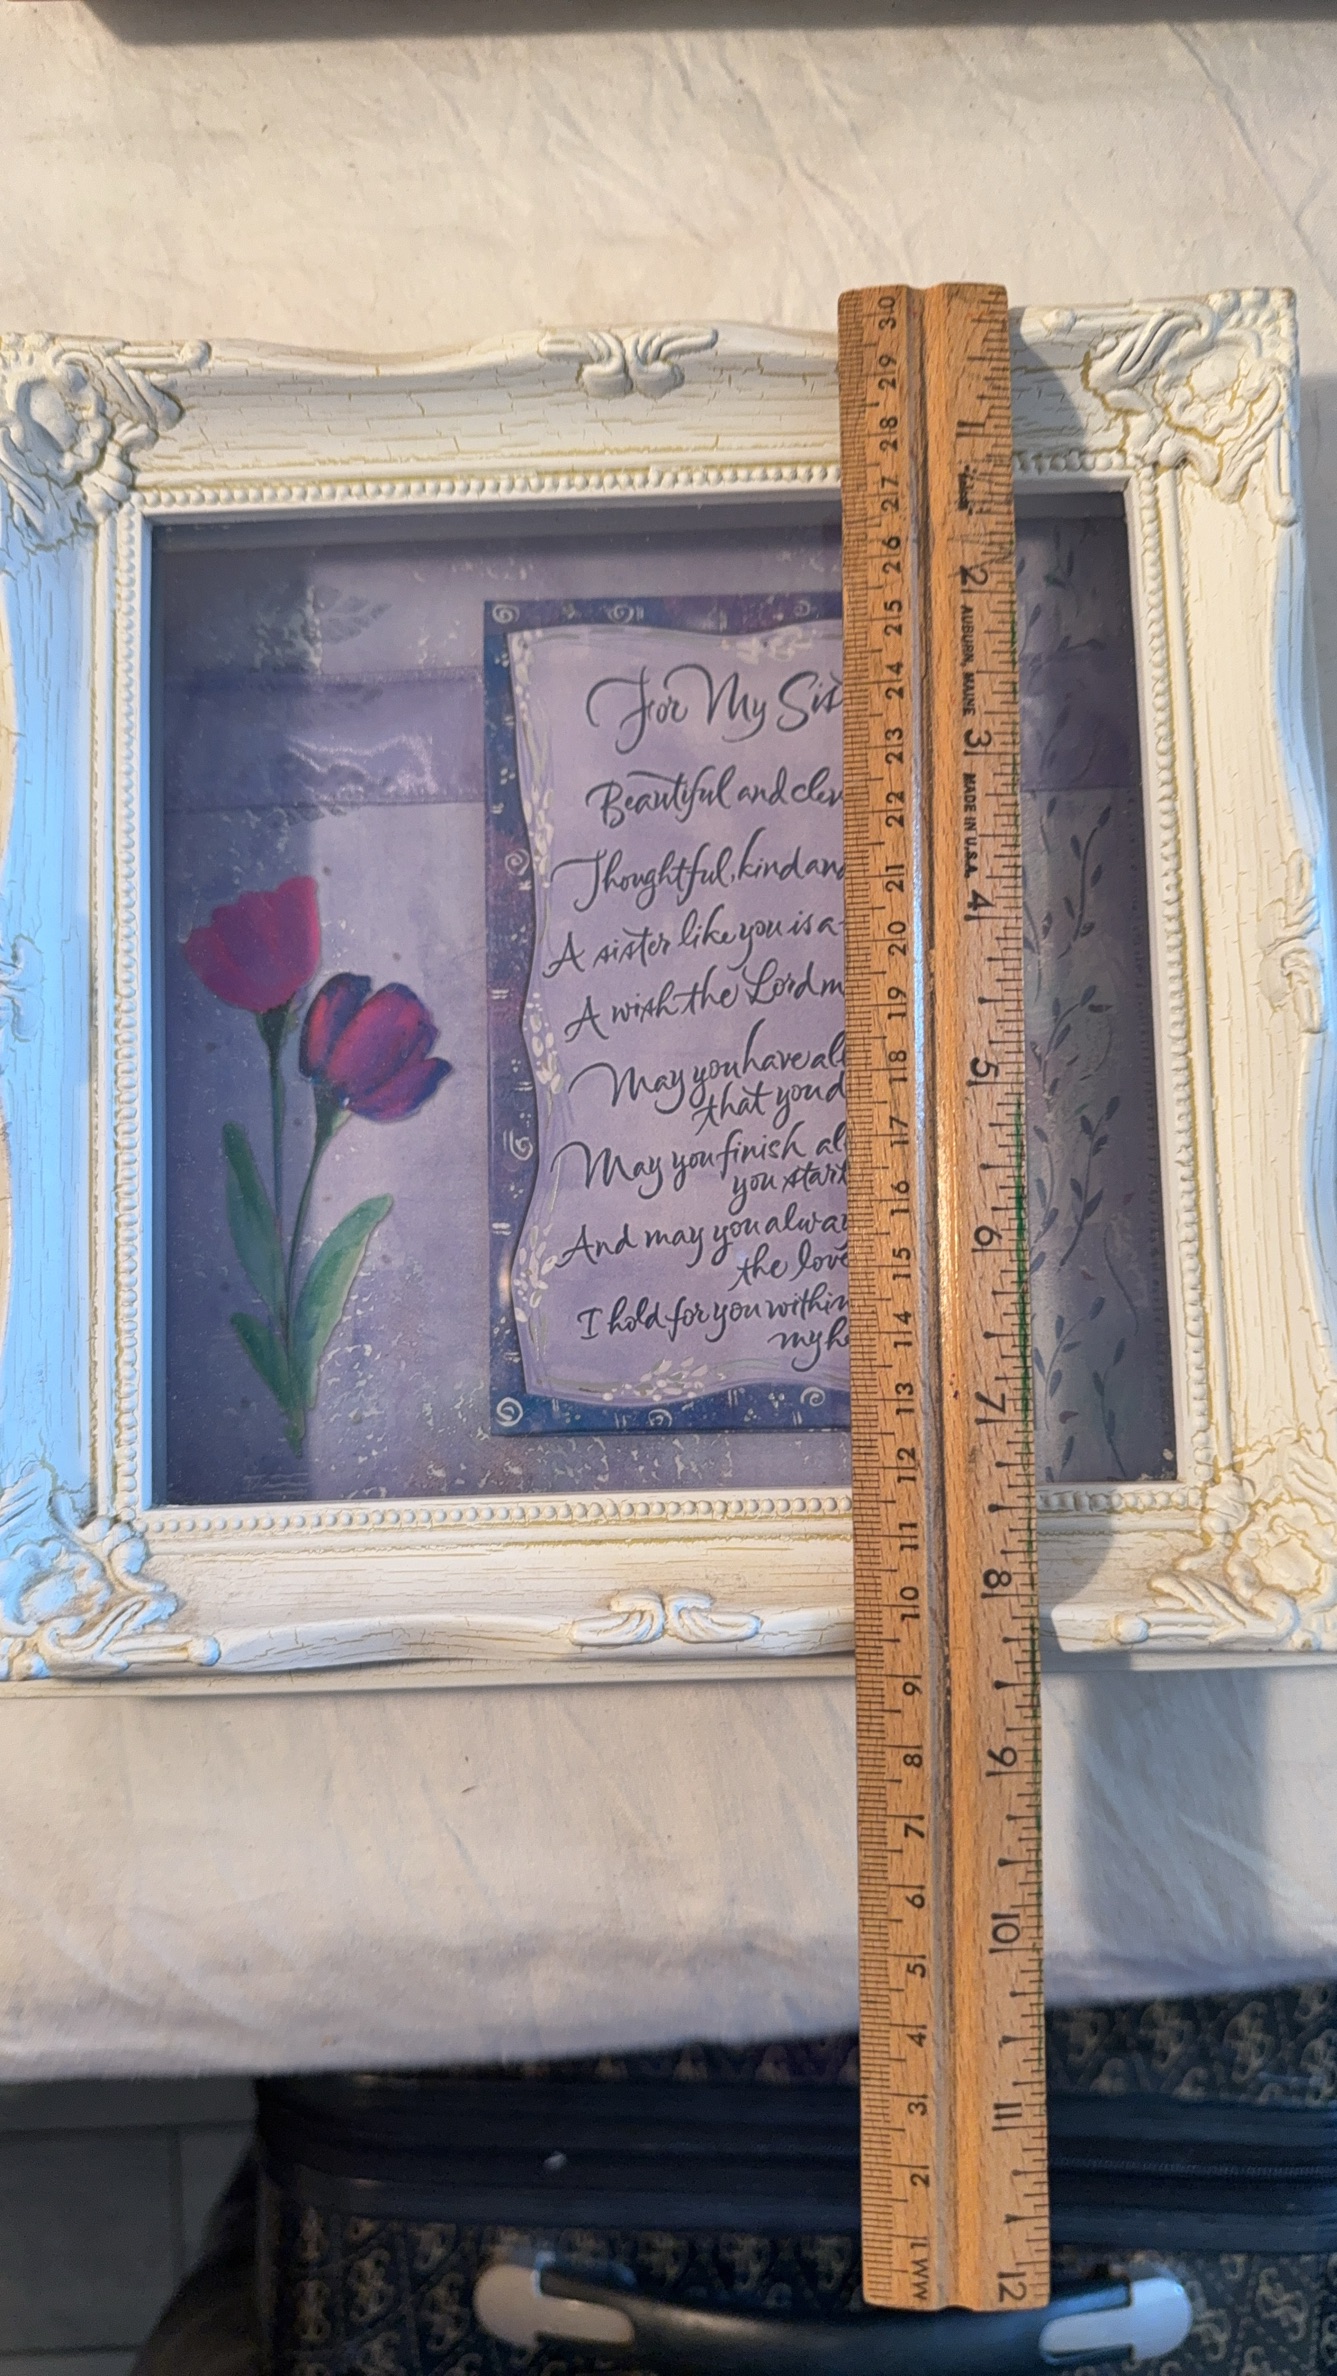 For My Sis
Beautiful and clev
Thoughtful, kind and
A sister like you is a
A wish the Lord m
May you have all
that you d
May you finish al
you start
And may you alway
the love
I hold for you within
my h
30 29 28 27 26 25 24 23 22 21 20 19 18 17 16 15 14 13 12 11 10 9 8 7 6 5 4 3 2 1 MM
1 2 3 4 5 6 7 8 9 10 11 12
AUBURN, MAINE MADE IN U.S.A.